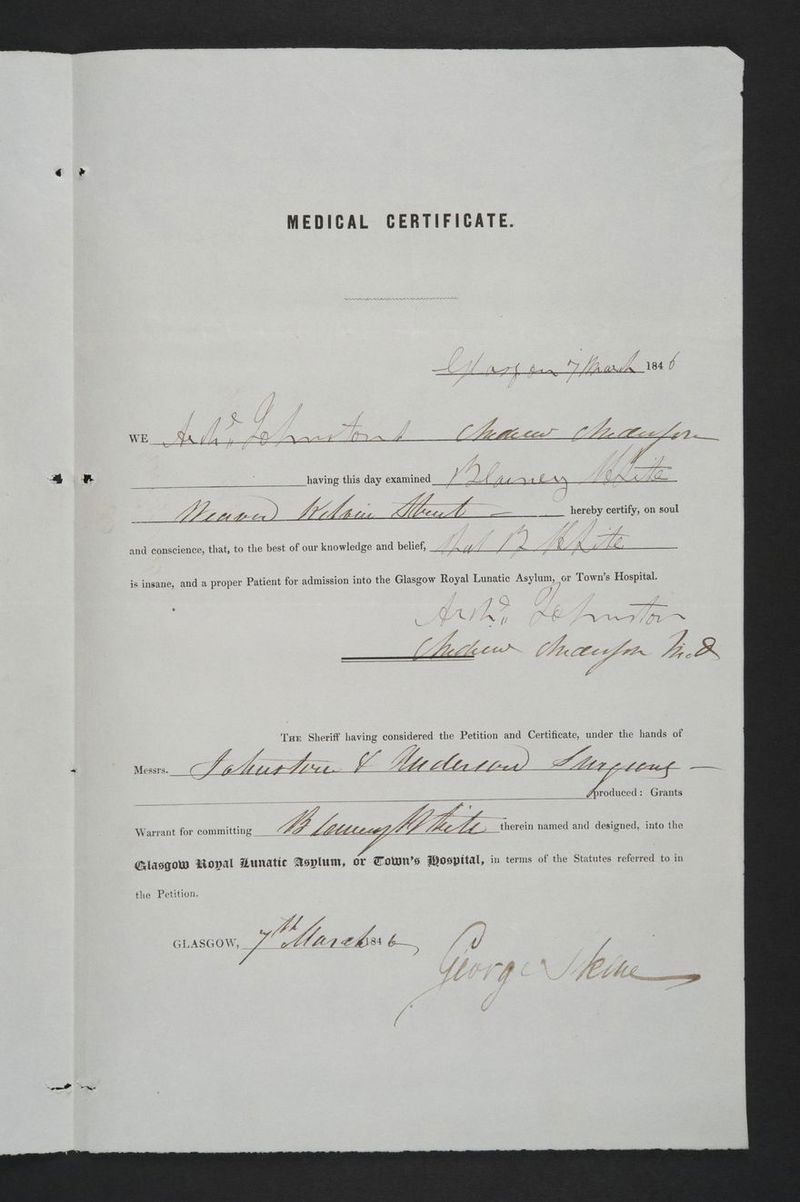 MEDICAL CERTIFICATE.
Glasgow 7 March 1846
WE Archd. Johnston & Andrew Anderson
having this day examined Blainey White
Weaver Kelvin Street hereby certify, on soul
and conscience, that, to the best of our knowledge and belief, that B White
is insane, and a proper Patient for admission into the Glasgow Royal Lunatic Asylum, or Town's Hospital.
Archd. Johnston
Andrew Anderson M.D
THE Sheriff having considered the Petition and Certificate, under the hands of
Messrs. Johnston & Anderson Surgeons
produced: Grants
Warrant for committing White therein named and designed, into the
Glasgow Royal Lunatic Asylum, or Town's Hospital, in terms of the Statutes referred to in
the Petition.
GLASGOW, 7th March 1846
George Skene